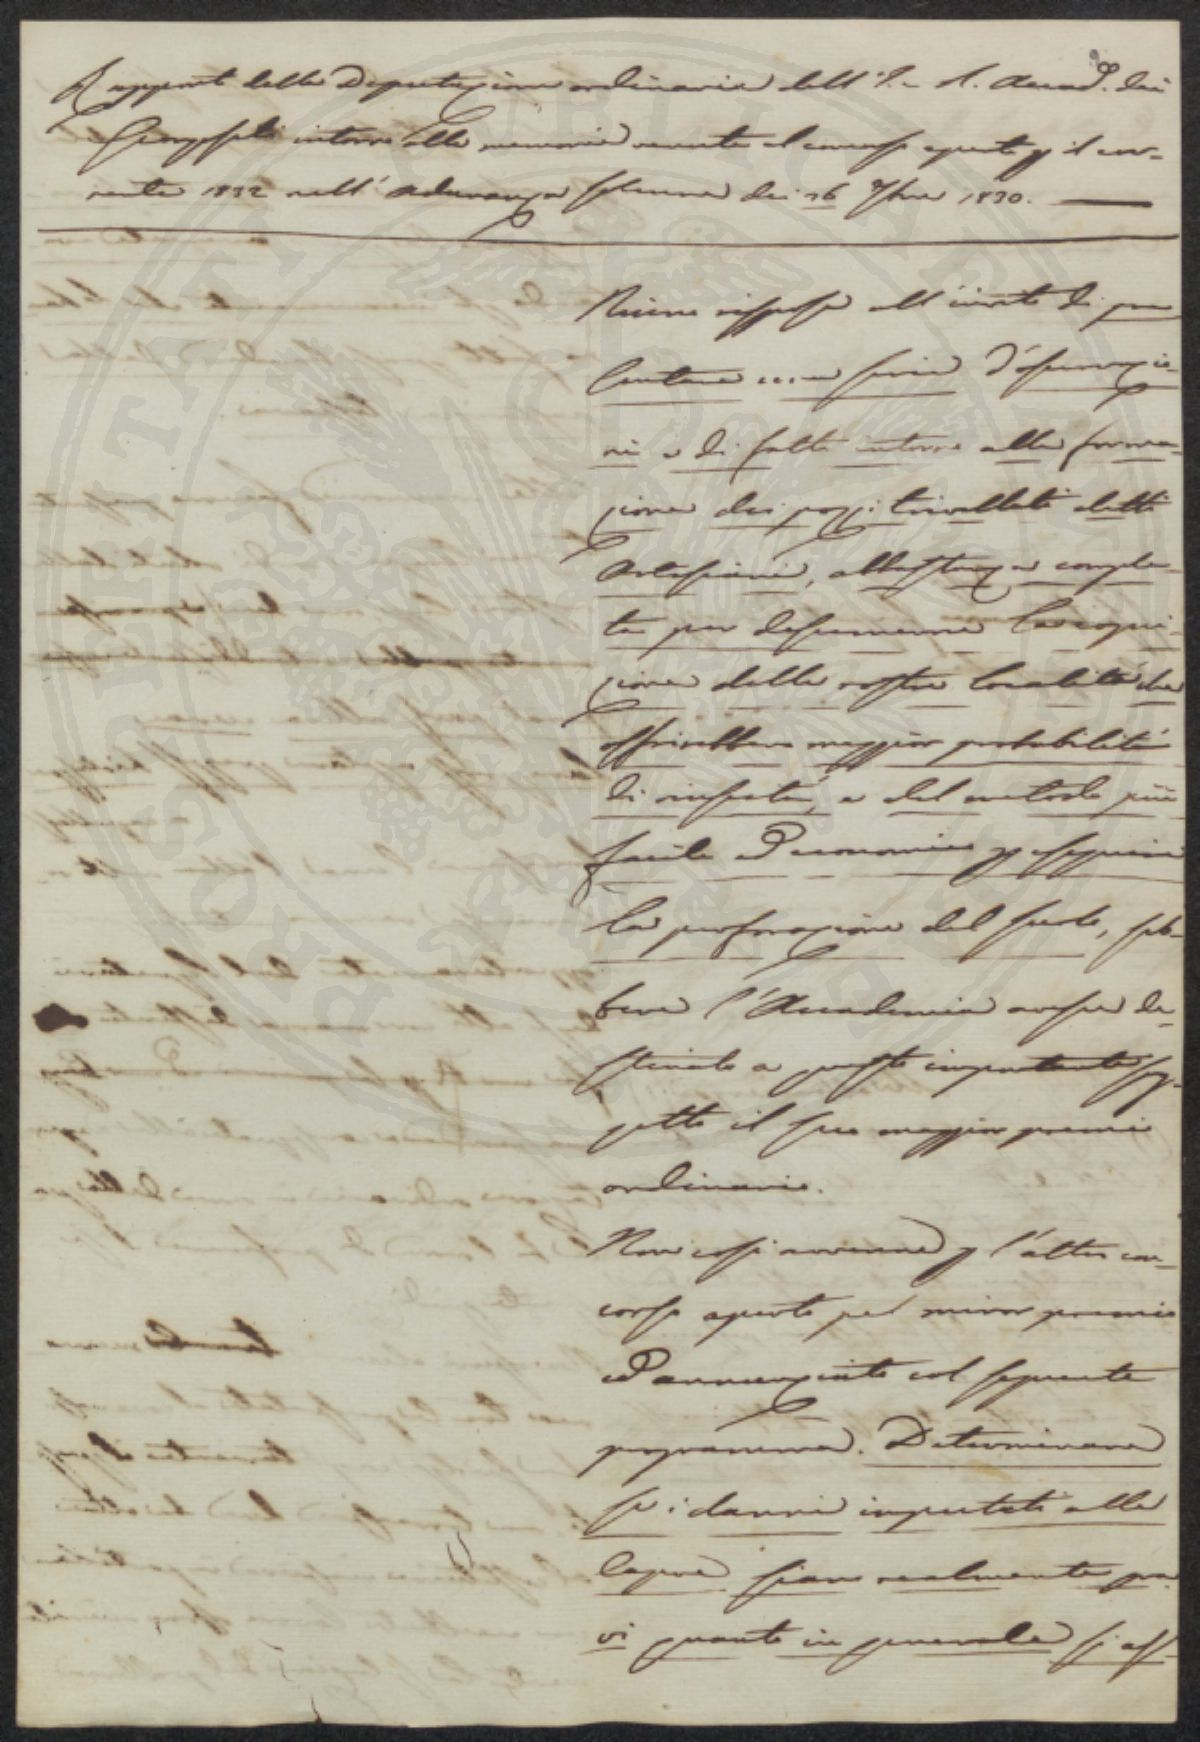 Rapporto della Deputazione ordinaria dell' I. e R. Accad. dei
Georgofili intorno alle memorie venute al concorso aperto p il cor-
rente 1832 nell' Adunanza solenne dei 26 7bre 1830.
Niuno rispose all' invito di pre
sentare una serie d'osservazio-
ni e di fatti intorno alla forma-
zione dei pozzi trivellati detti
Artesiani, abbastanza comple-
ta per desumerne la cogni-
zione delle nostre località che
offrirebbero maggior probabilità
di riuscita, e del metodo più
facile ed economico p eseguire
la perforazione del suolo, seb-
bene l'Accademia avesse de-
stinato a questo importante sog-
getto il suo maggior premio
ordinario.
Non così avvenne p l'altro con-
corso aperto pel minor premio
ed annunziato col seguente
programma. Determinare
se i danni imputati alle
Capre siano realmente gra
vi quanto in generale si as-
PUBLICAE PROSPERITATI